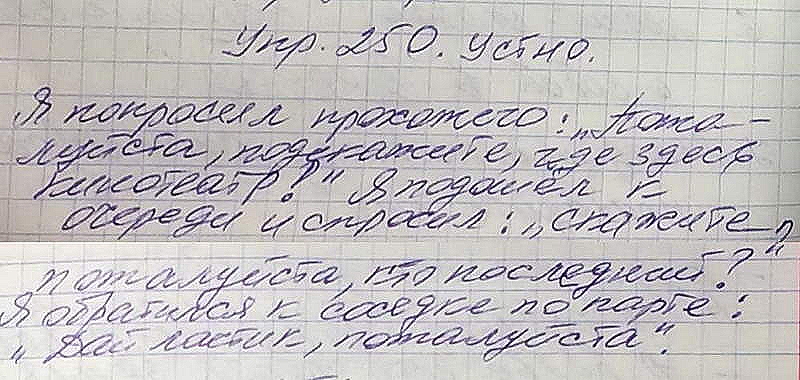 Упр. 250. Устно.
Я попросил прохожего: „Пожа-
луйста, подскажите, где здесь
кинотеатр?" Я подошёл к
очереди и спросил: „Скажите,
пожалуйста, кто последний?"
Я обратился к соседке по парте:
„Дай ластик, пожалуйста".